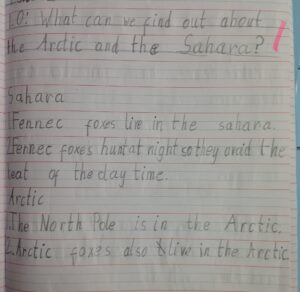 LO: What can we find out about
the Arctic and the Sahara?
Sahara
1.Fennec foxes live in the sahara.
2.Fennec foxes hunt at night so they avoid the
heat of the day time.
Arctic
1.The North Pole is in the Arctic.
2.Arctic foxes also live in the Arctic.